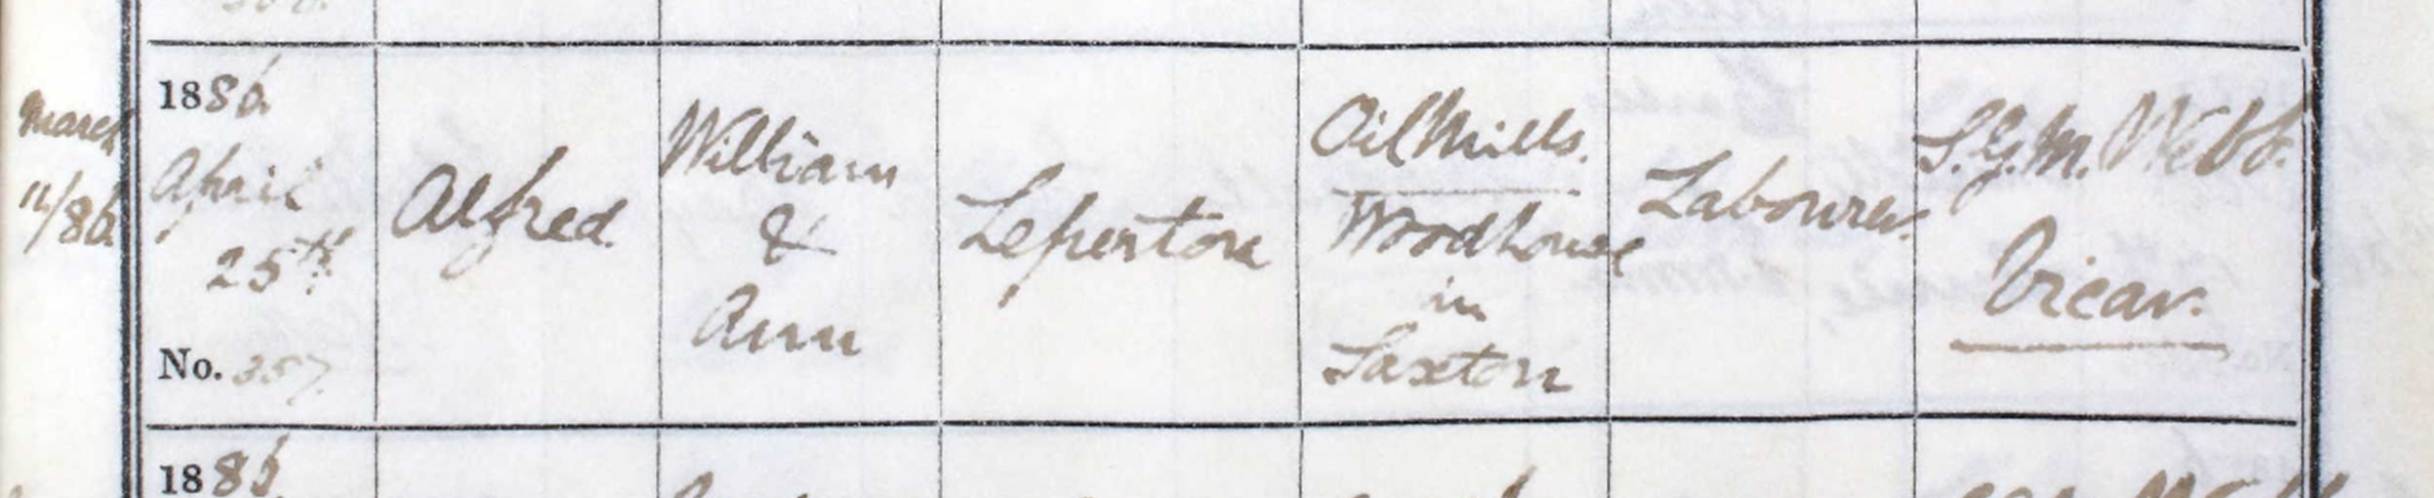 March
11/86
1886
April
25th
No. 357.
Alfred
William
&
Ann
Lepentone
Oil Mills.
Woodhouse
in
Saxton
Labourer
S.G.M. Webb.
Vicar.
1886